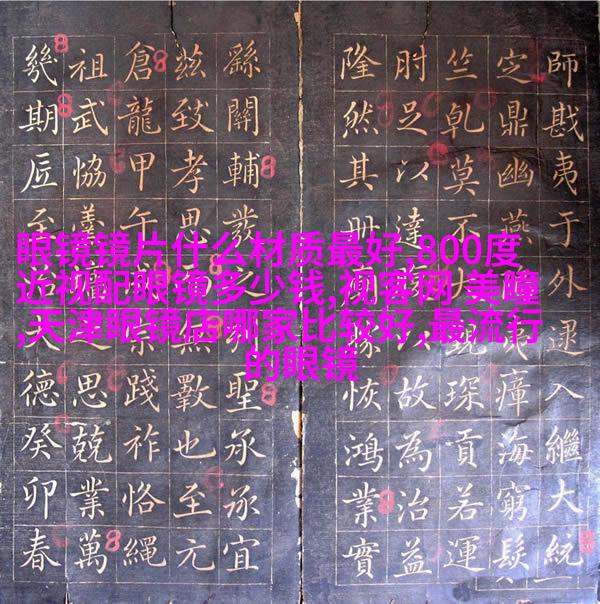 眼镜镜片什么材质最好,800度
近视配眼镜多少钱,视客网 美瞳
,天津眼镜店哪家比较好,最流行
的眼镜
師戡夷于外逮入繼大統
定鼎幽燕瘴海窮髮
竺乹莫不琛貢若運
肘足以達故為治益
隆然其毌恢鴻業實
繇關輔發聖承承宜
茲致孝思無斁也至元
倉龍甲午踐祚恪繩
祖武協思兢業萬
幾期匠至德癸卯春